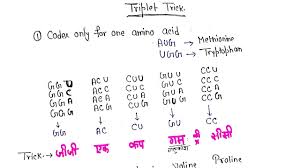 Triplet Trick.
① Codex only for one amino acid
AUG — Methionine
UGG → Tryptophan
GGU ACU CUU GUU CCU
GGC ACC CUC GUC CCC
GGA ACA CUA GUA CCA
GGG ACG CUG GUG CCG
GG AC CU GU CC
Trick. → जीजी एक कप गम में सीसी
Valine Proline